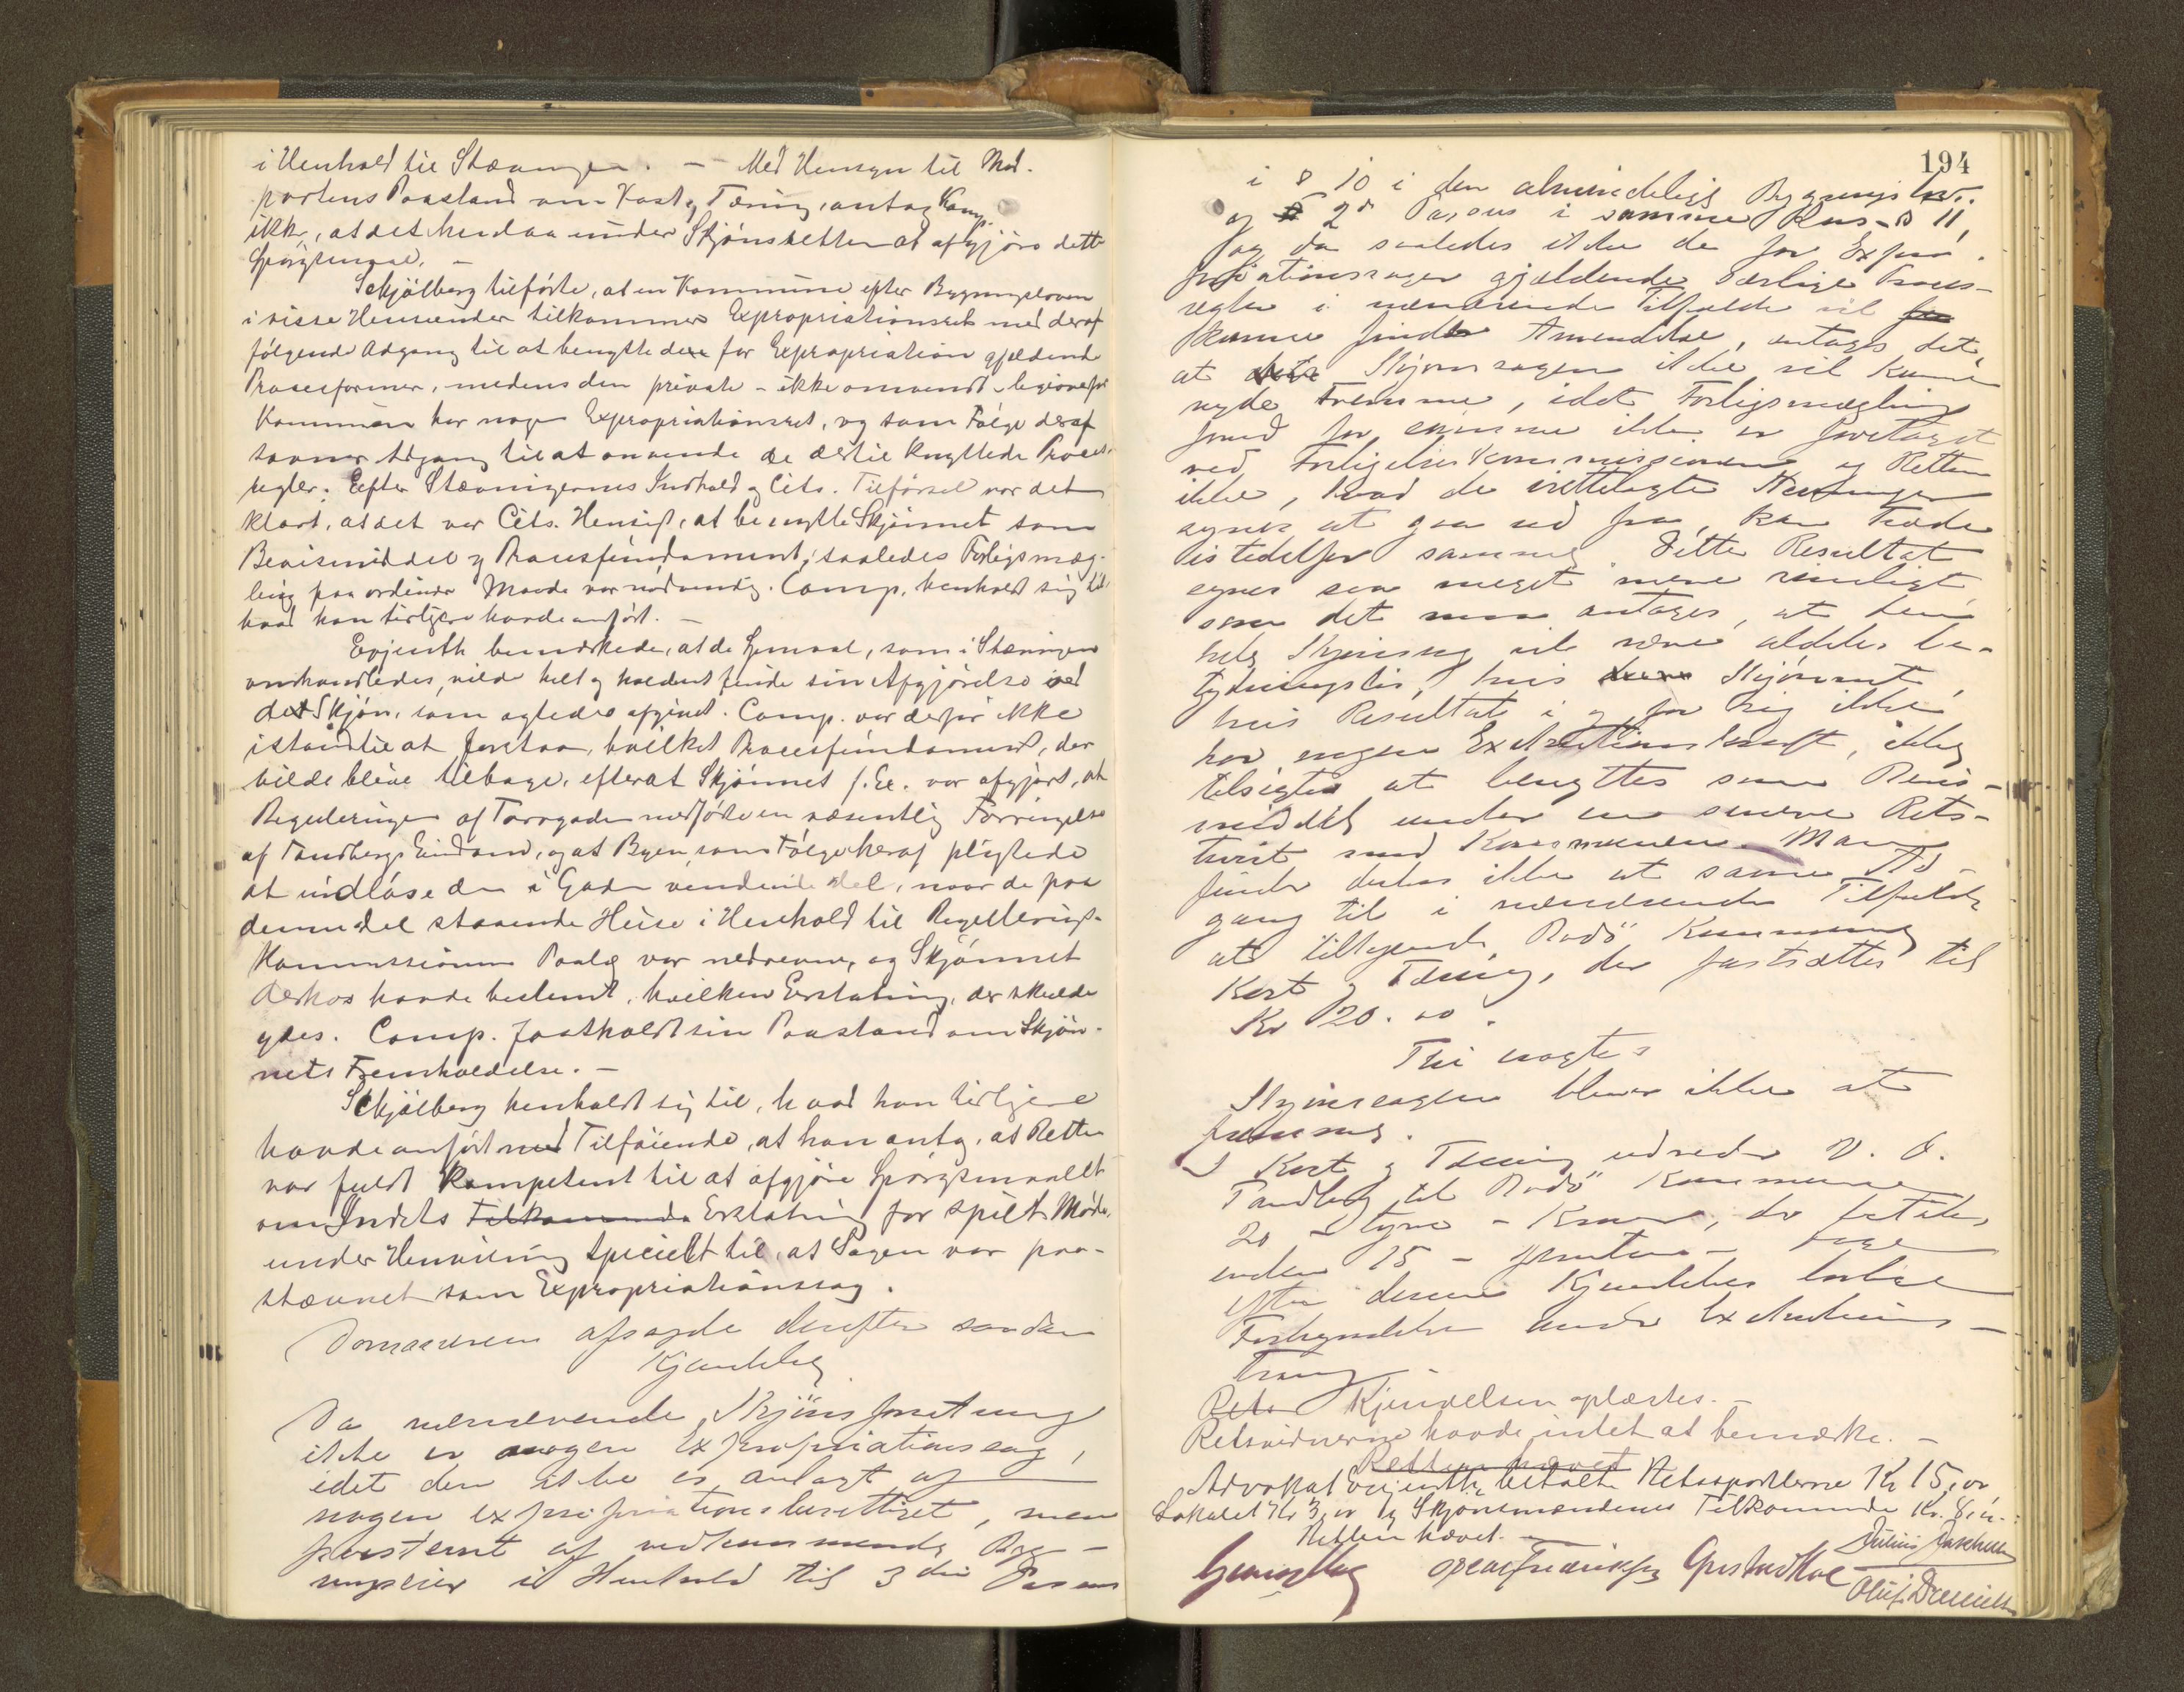 i Henhold til Stævningen. — Med Hensyn til Mod-
partens Paastand om Kost og Tæring, antog Comp.
ikke, at det henlaa under Skjønsretten at afgjøre dette
Spørgsmaal. —
Schjølberg tilførte, at en Kommune efter Bygningsloven
i visse Henseender tilkommer Expropriationsret med deraf
følgende Adgang til at benytte de for Expropriation gjældende
Procesformer, medens den private – ikke omvendt ligeoverfor
Kommunen har nogen Expropriationsret, og som Følge deraf
savner Adgang til at anvende de dertil knyttede Proces-
regler. Efter Stævningernes Indhold og Cits. Tilførsel var det
klart, at det var Cits. Hensigt, at benytte Skjønnet som
Bevismiddel og Procesfundament, saaledes Forligsmæg-
ling paa ordinær Maade var nødvendig. Comp. henholdt sig til
hvad han tidligere havde anført. —
Evjenth bemærkede, at de Spmaal, som i Stævningen
omhandledes, vilde helt og holdent finde sin Afgjørelse ved
det Skjøn, som agtedes afgivet. Comp. var derfor ikke
istand til at forstaa, hvilket Procesfundament, der
vilde blive tilbage, efterat Skjønnet f. Ex. var afgjort, at
Reguleringen af Torvgaden medførte en væsentlig Forringelse
af Tandbergs Eiendom, og at Byen som Følge heraf pligtede
at indløse den i Gaden vendende Del, naar de paa
denne Del staaende Huse i Henhold til Regulerings-
Kommissionens Paalæg var nedrevne, og Skjønnet
derhos havde bestemt, hvilken Erstatning, der skulde
ydes. Comp. fastholdt sin Paastand om Skjøn-
nets Fremholdelse. —
Schjølberg henholdt sig til, hvad han tidligere
havde anført med Tilføiende, at han antog, at Retten
var fuldt kompetent til at afgjøre Spørgsmaalet
om Indcts Tilkommende Erstatning for spildt Møde,
under Henvisning specielt til, at Sagen var paa-
stævnet som Expropriationssag.
Domaren afsagde derefter saadan
Kjendelse
Da nærværende Skjønsforretning
ikke er nogen Expropriationssag,
idet den ikke er anlagt af
nogen expropriationsberettiget, men
paastevnt af vedkommende Byg-
ningseier i Henhold til 3die Passus
194
i § 10 i den almindelige Bygningslov
og 2den Passus i samme Lovs § 11,
og da saaledes ikke de for Expro-
priationssager gjældende særlige Proces-
regler i nærværende Tilfælde vil
kunne finde Anvendelse, antages det,
at Skjønssagen ikke vil kunne
nyde Fremme, idet Forligsmægling
forud for samme ikke er foretaget
ved Forligelseskommissionen og Retten
ikke, hvad de irettelagte Stevninger
synes at gaa ud fra, kan træde
istedetfor samme. Dette Resultat
synes saa meget mere rimeligt
som det maa antages, at den
hele Skjønssag vil være aldeles be-
tydningsløs, hvis Skjønnet,
hvis Resultat i og for sig ikke
har nogen Exekutionskraft, ikke
tilsigtes at benyttes som Bevis-
middel under en senere Rets-
tvist med Kommunen. Man
finder derhos ikke at savne Ad-
gang til i nærværende Tilfælde
at tilkjende Bodø Kommune
Kost og Tæring, der fastsættes til
Kr 20.00.
Thi eragtes
Skjønssagen bliver ikke at
fremme.
I Kost og Tæring udreder V. O.
Tandberg til Bodø Kommune
20 – tyve – Kroner, der betales
inden 15 – femten – Dage
efter denne Kjendelses lovlige
Forkyndelse under Exekutions-
tvang
Rets Kjendelsen oplæstes. —
Retsvidnerne havde intet at bemærke. —
Retten hævet
Advokat Evjenth betalte Retssportlerne Kr 15,00
Lokalet Kr 3,00 og Skjønsmændenes Tilkommende Kr. 8,00.
Retten hævet. —
Gustav Moe